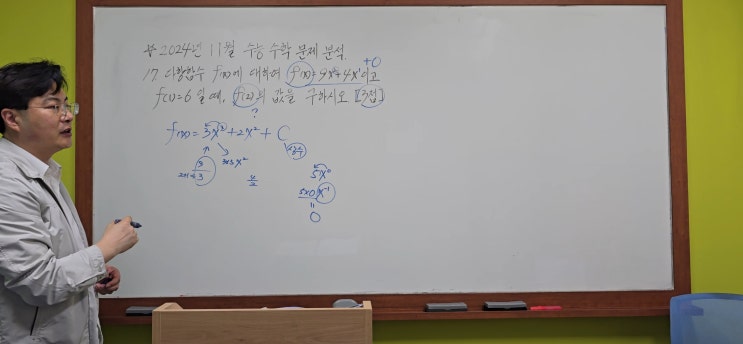 ※ 2024년 11월 수능 수학 문제 분석.
+0
17. 다항함수 f(x)에 대하여 f'(x)=9x²+4x¹이고
f(1)=6 일 때, f(2)의 값을 구하시오 [3점]
?
f(x)= 3x³+2x²+ C
상수
3x3x²
3
3
5x⁰
5x0x⁻¹
=
0